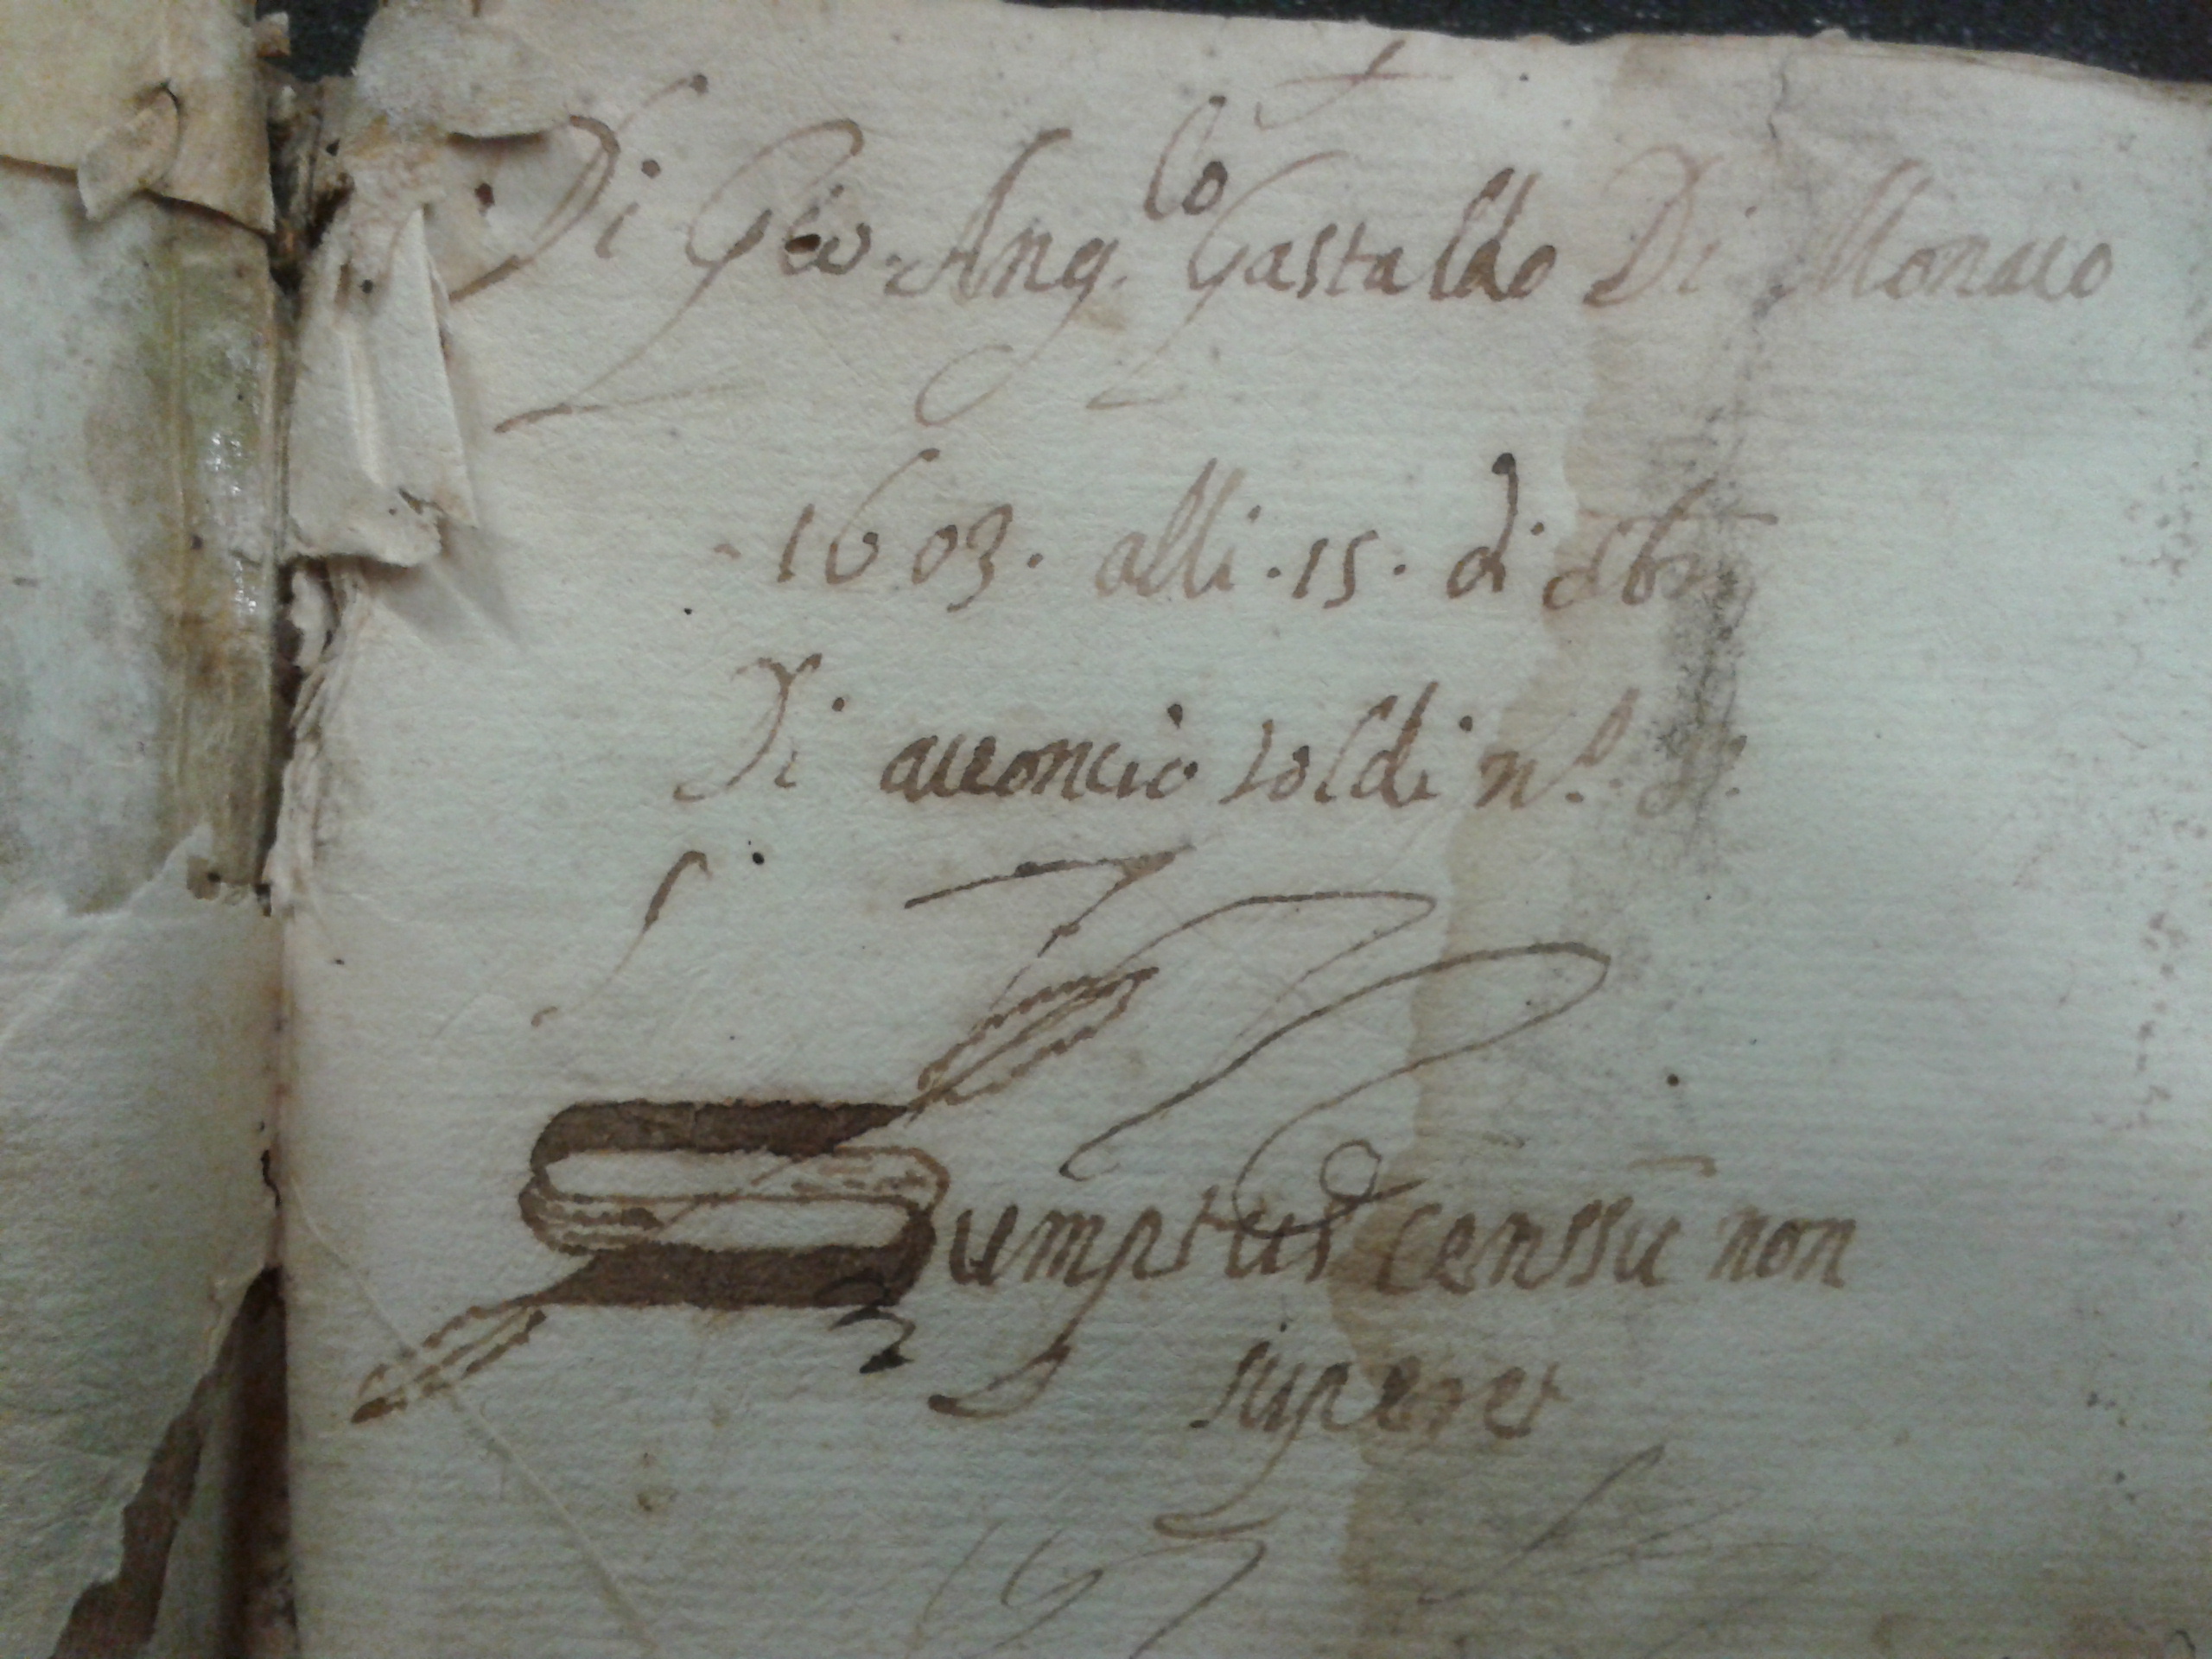 Di Gio. Ang.lo Gastaldo Di Monaco
1603. alli .15. di
Di acconcio soldi n.o
Sumptus censsū non
superet